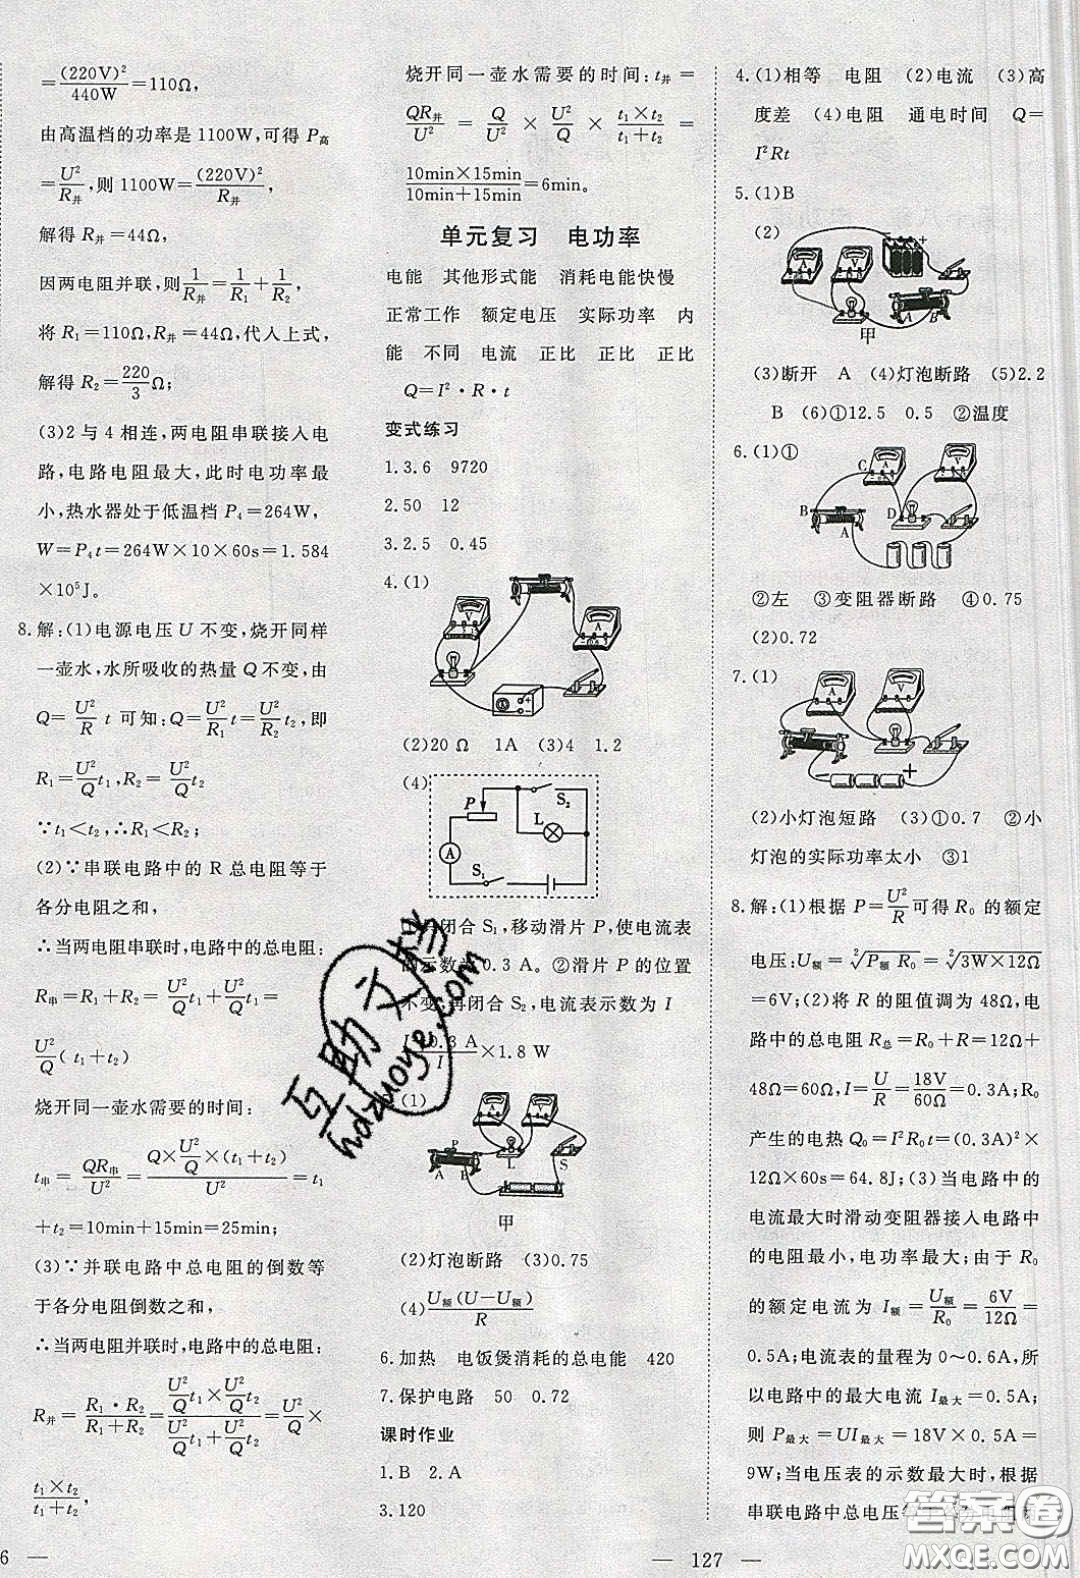 =(220V)²/440W=110Ω,
由高温档的功率是1100W,可得P高
=U²/R并,则1100W=(220V)²/R并,
解得R并=44Ω,
因两电阻并联,则1/R并=1/R₁+1/R₂,
将R₁=110Ω,R并=44Ω,代人上式,
解得R₂=220/3Ω;
(3)2与4相连,两电阻串联接入电
路,电路电阻最大,此时电功率最
小,热水器处于低温档P₄=264W,
W=P₄t=264W×10×60s=1.584
×10⁵J。
8.解:(1)电源电压U不变,烧开同样
一壶水,水所吸收的热量Q不变,由
Q=U²/R t可知:Q=U²/R₁t=U²/R₂t₂,即
R₁=U²/Qt₁,R₂=U²/Qt₂
∵t₁<t₂,∴R₁<R₂;
(2)∵串联电路中的R总电阻等于
各分电阻之和,
∴当两电阻串联时,电路中的总电阻:
R串=R₁+R₂=U²/Qt₁+U²/Qt₂=
U²/Q(t₁+t₂)
烧开同一壶水需要的时间:
t串=QR串/U²=Q×U²/Q×(t₁+t₂)/U²=t₁
+t₂=10min+15min=25min;
(3)∵并联电路中总电阻的倒数等
于各分电阻倒数之和,
∴当两电阻并联时,电路中的总电阻:
R并=R₁·R₂/R₁+R₂=U²/Qt₁×U²/Qt₂/U²/Qt₁+U²/Qt₂=U²/Q×
t₁×t₂/t₁+t₂,
6 —
烧开同一壶水需要的时间:t并=
QR并/U²=Q/U²×U²/Q×t₁×t₂/t₁+t₂=
10min×15min/10min+15min=6min。
单元复习 电功率
电能 其他形式能 消耗电能快慢
正常工作 额定电压 实际功率 内
能 不同 电流 正比 正比 正比
Q=I²·R·t
变式练习
1.3.6 9720
2.50 12
3.2.5 0.45
4.(1)
V
A
(2)20Ω 1A (3)4 1.2
(4)
P S₂
L
A
S₁
闭合S₁,移动滑片P,使电流表
的示数为0.3A。②滑片P的位置
不变,再闭合S₂,电流表示数为I
0.3A/I×1.8W
(1)
A V
P
A B L S
甲
(2)灯泡断路 (3)0.75
(4)U额(U-U额)/R
6.加热 电饭煲消耗的总电能 420
7.保护电路 50 0.72
课时作业
1.B 2.A
3.120
— 127 —
4.(1)相等 电阻 (2)电流 (3)高
度差 (4)电阻 通电时间 Q=
I²Rt
5.(1)B
(2)
A V +
A B
甲
(3)断开 A (4)灯泡断路 (5)2.2
B (6)①12.5 0.5 ②温度
6.(1)①
C A V
B A D
②左 ③变阻器断路 ④0.75
(2)0.72
7.(1)
A V
+
(2)小灯泡短路 (3)①0.7 ②小
灯泡的实际功率太小 ③1
8.解:(1)根据P=U²/R可得R₀的额定
电压:U额=²√P额R₀=²√3W×12Ω
=6V;(2)将R的阻值调为48Ω,电
路中的总电阻R总=R₀+R=12Ω+
48Ω=60Ω,I=U/R=18V/60Ω=0.3A;R₀
产生的电热Q₀=I²R₀t=(0.3A)²×
12Ω×60s=64.8J;(3)当电路中的
电流最大时滑动变阻器接人电路中
的电阻最小,电功率最大;由于R₀
的额定电流为I额=U额/R₀=6V/12Ω=
0.5A;电流表的量程为0~0.6A,所
以电路中的最大电流I最大=0.5A;
则P最大=UI最大=18V×0.5A=
9W;当电压表的示数最大时,根据
串联电路中总电压
互助文档
hdzuoye.com
答案圈
MXQE.COM